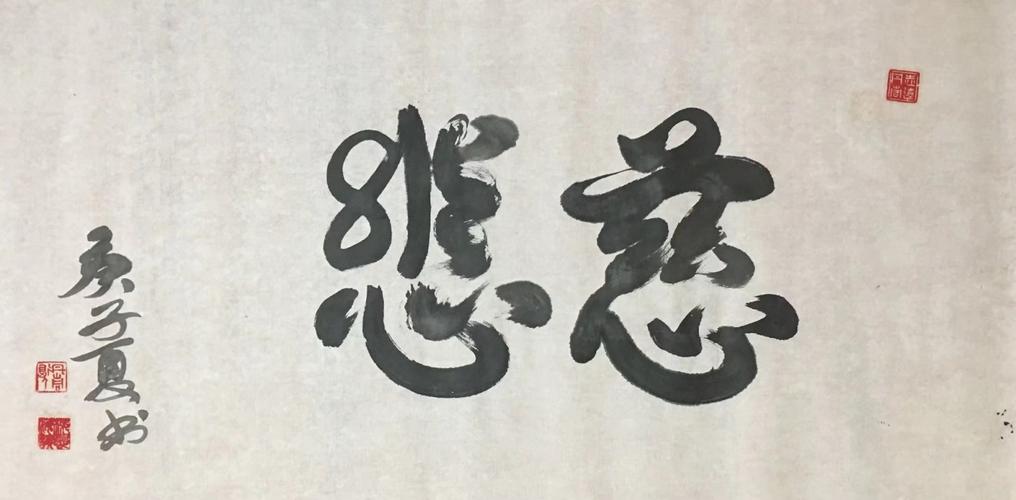 慈悲
庚子夏书